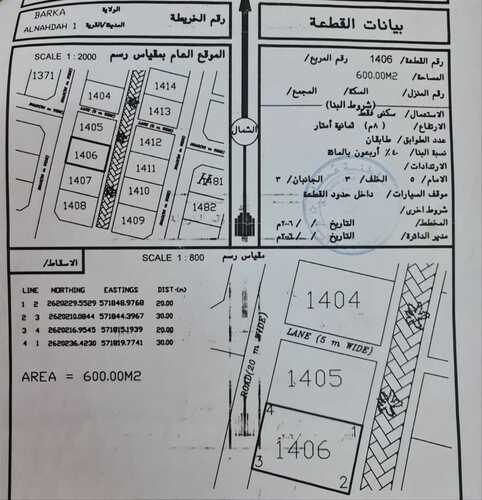 بيانات القطعة
رقم القطعة/ 1406 رقم المربع/
المساحة/ 600.00M2
رقم المنزل/ السكة/ المجمع/
(شروط البنا)
الاستعمال/ سكنى فقط
الارتفاع/ (٨م) ثمانية أمتار
عدد الطوابق/ طابقان
نسبة البنا/ ٤٠٪ أربعون بالمائة
الارتدادات/
الامام/ ٥ الخلف/ ٣ الجانبان/ ٣
موقف السيارات/ داخل حدود القطعة
شروط اخرى/
المخطط/ التاريخ / / ٢٠٠٦م
مدير الدائرة/ التاريخ / / ٢٠٠٦م
الشمال
رقم الخريطة
BARKA الولاية
ALNAHDAH 1 المدينة/القرية
SCALE 1 : 2000 الموقع العام بمقياس رسم
1371
1404
1414
1405
1413
1406
1412
1407
1411
1481
1408
1410
1482
1409
الاسقاط/
SCALE 1 : 800 مقياس رسم
LINE NORTHING EASTINGS DIST-(m)
1 2 2620229.5529 571848.9768 20.00
2 3 2620210.0844 571844.3967 30.00
3 4 2620216.9545 571815.1939 20.00
4 1 2620236.4230 571819.7741 30.00
AREA = 600.00M2
ROAD(20 m WIDE)
1404
LANE (5 m WIDE)
1405
1406
4
1
3
2